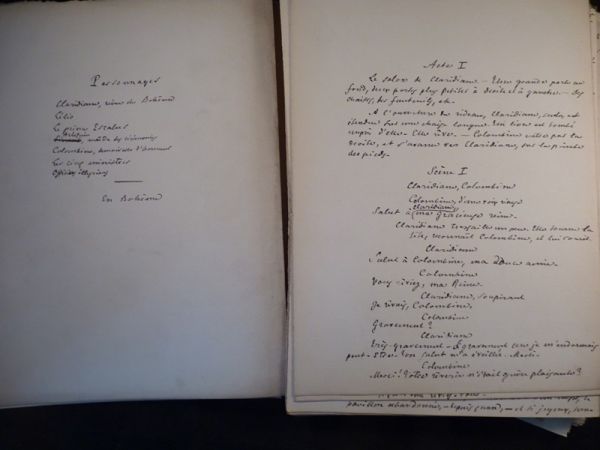 Personnages
Claridiane, reine de Bohême
Lélio
Le prince Escalus
maître des cérémonies
Colombine, demoiselle d'honneur
Les cinq ministres
Officiers illyriens
En Bohême
Acte I
Le salon de Claridiane. — Une grande porte au
fond, deux portes plus petites à droite et à gauche. — Des
chaises, des fauteuils, etc.
A l'ouverture du rideau, Claridiane, seule, est
étendue sur une chaise longue. Un livre est tombé
auprès d'elle. Elle rêve. — Colombine entre par la
droite, et s'avance vers Claridiane, sur la pointe
des pieds.
Scène I
Claridiane, Colombine
Colombine, d'une voix
Claridiane
Salut à ma gracieuse reine.
Claridiane tressaille un peu. Elle tourne la
tête, reconnaît Colombine, et lui sourit.
Claridiane
Salut à Colombine, ma douce amie.
Colombine
Vous rêviez, ma Reine.
Claridiane, soupirant
Je rêvais, Colombine.
Colombine
Gravement?
Claridiane
Très gravement. — Si gravement que je m'endormais
peut-être. Ton salut m'a éveillée. Merci.
Colombine
Merci? Votre rêverie n'était guère plaisante?
pavillon abandonné, — depuis quand, — et si joyeux,